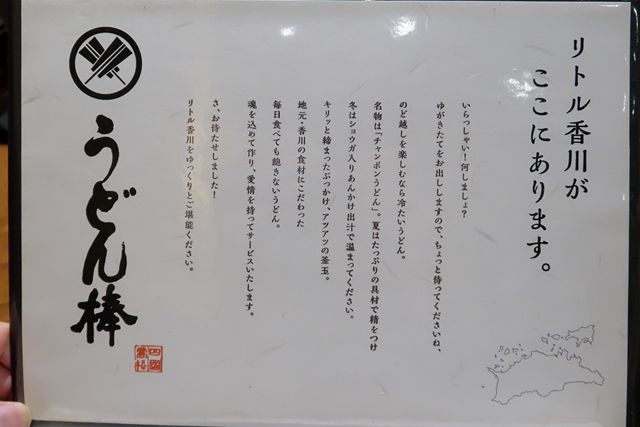 リトル香川が
ここにあります。
いらっしゃい!何しましょ?
ゆがきたてをお出ししますので、ちょっと待ってくださいね、
のど越しを楽しむなら冷たいうどん。
名物は「チャンポンうどん」。夏はたっぷりの具材で精をつけ
冬はショウガ入りあんかけ出汁で温まってください。
キリッと締まったぶっかけ、アツアツの釜玉。
地元・香川の食材にこだわった
毎日食べても飽きないうどん。
魂を込めて作り、愛情を持ってサービスいたします。
さ、お待たせしました!
リトル香川をゆっくりとご堪能ください。
うどん棒
四国